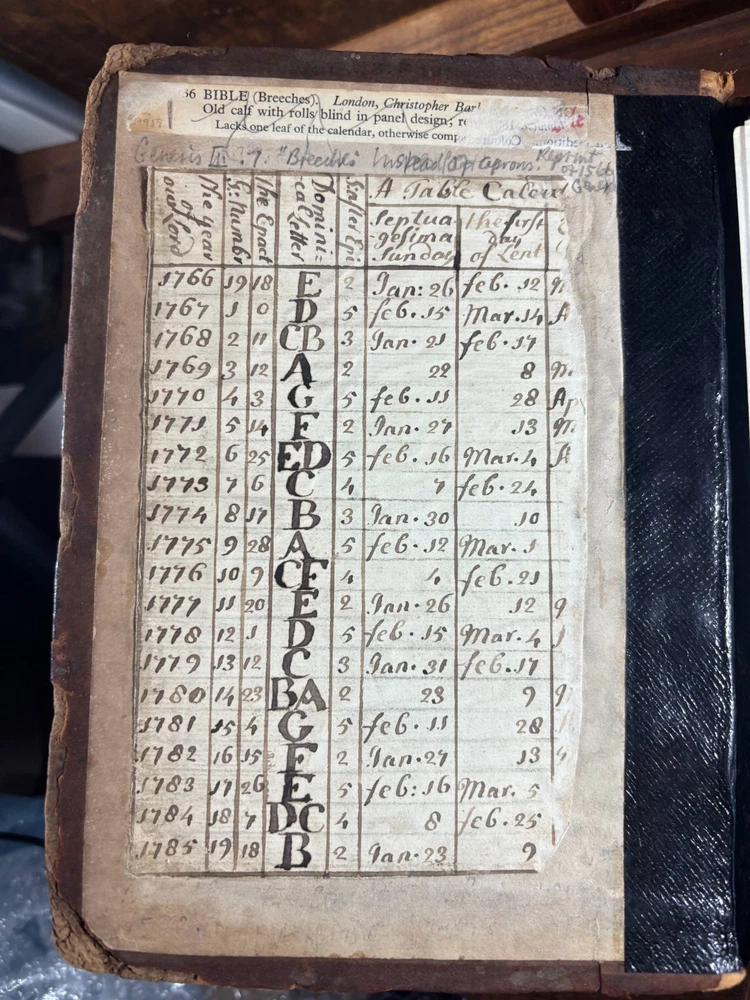 36 BIBLE (Breeches). London, Christopher Bar
Old calf with rolls blind in panel design; re
Lacks one leaf of the calendar, otherwise comp
Genesis III : 7. "Breeches" Instead of aprons. Reprint
of 1566
Genev
The year of our Lord G: Numbr The Epact Domini=cal Letter A Table Calen
Septua-gesima Sunday the first day of Lent
1766 19 18 E 2 Jan: 26 feb. 12
1767 1 0 D 5 feb. 15 Mar. 14 A
1768 2 11 CB 3 Jan. 21 feb. 17
1769 3 12 A 2 22 8 M
1770 4 3 G 5 feb. 11 28 Ap
1771 5 14 F 2 Jan. 27 13 M
1772 6 25 ED 5 feb. 16 Mar. 4 A
1773 7 6 C 4 7 feb. 24
1774 8 17 B 3 Jan. 30 10
1775 9 28 A 5 feb. 12 Mar. 1
1776 10 9 CF 4 4 feb. 21
1777 11 20 E 2 Jan. 26 12
1778 12 1 D 5 feb. 15 Mar. 4
1779 13 12 C 3 Jan. 31 feb. 17
1780 14 23 BA 2 23 9
1781 15 4 G 5 feb. 11 28
1782 16 15 F 2 Jan. 27 13
1783 17 26 E 5 feb: 16 Mar. 5
1784 18 7 DC 4 8 feb. 25
1785 19 18 B 2 Jan. 23 9